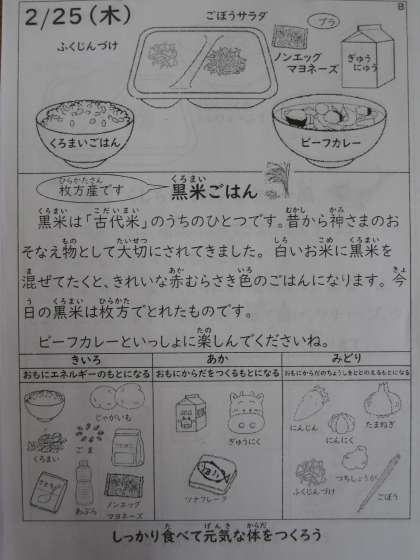 B
2/25(木)
ごぼうサラダ
プラ
ふくじんづけ
ノンエッグ
マヨネーズ
ぎゅう
にゅう
くろまいごはん
ビーフカレー
ひらかたさん
枚方産です
くろまい
黒米ごはん
くろまい こだいまい むかし かみ
黒米は「古代米」のうちのひとつです。昔から神さまのお
もの たいせつ しろ こめ くろまい
そなえ物として大切にされてきました。白いお米に黒米を
ま あか いろ きょ
混ぜてたくと、きれいな赤むらさき色のごはんになります。今
う くろまい ひらかた
日の黒米は枚方でとれたものです。
たの
ビーフカレーといっしょに楽しんでくださいね。
きいろ あか みどり
おもにエネルギーのもとになる おもにからだをつくるもとになる おもにからだのちょうしをととのえるもとになる
じゃがいも
くろまい
ごま
あぶら
ノンエッグ
マヨネーズ
ぎゅうにく
ツナフレーク
にんじん
にんにく
たまねぎ
ふくじんづけ
つちしょうが
ごぼう
た げんき からだ
しっかり食べて元気な体をつくろう